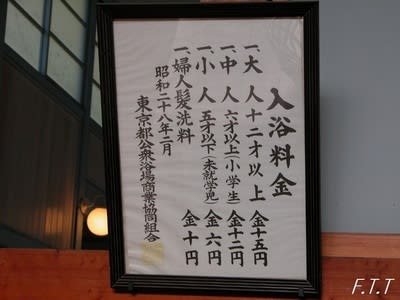 入浴料金
一、大人 十二才以上 金十五円
一、中人 六才以上(小学生) 金十二円
一、小人 五才以下(未就学児) 金六円
一、婦人髪洗料 金十円
昭和二十八年二月
東京都公衆浴場商業協同組合
F.T.T